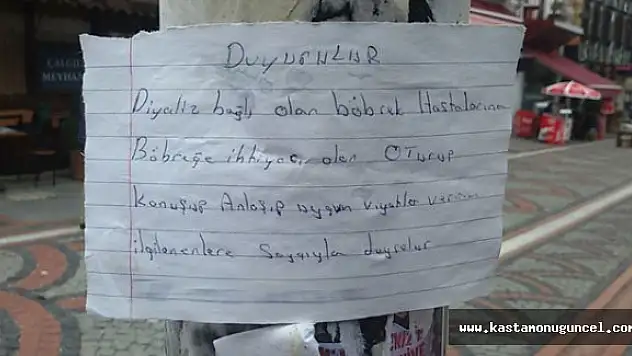 DUYURULAR
Diyaliz bağlı olan böbrek Hastalarına
Böbreğe ihtiyacı olan OTurup
Konuşup Anlaşıp uygun
ilgilenenlere Saygıyla duyrulur
www.kastamonuguncel.com